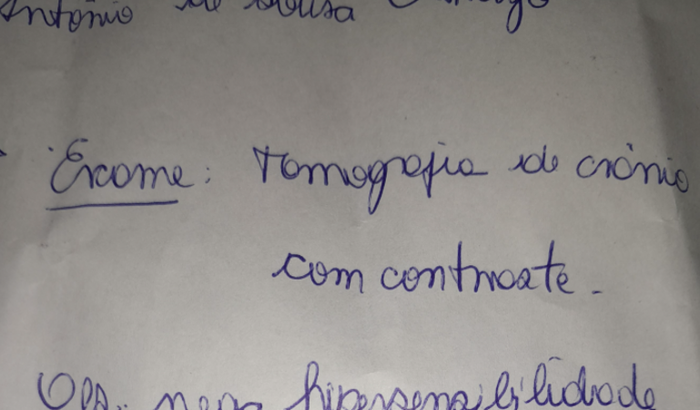 Antônio de Sousa
Exame: Tomografia de crânio
com contraste.
Obs.: nega hipersensibilidade